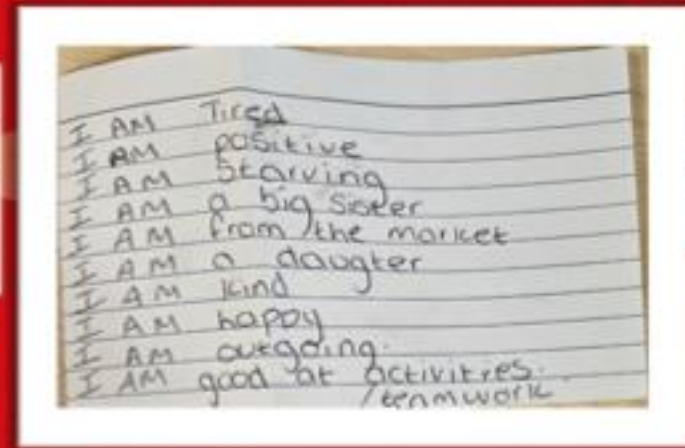 I AM Tired
I AM positive
I AM Starving
I AM a big Sister
I AM from the market
I AM a daugter
I AM kind
I AM happy
I AM outgoing.
I AM good at activities.
/teamwork